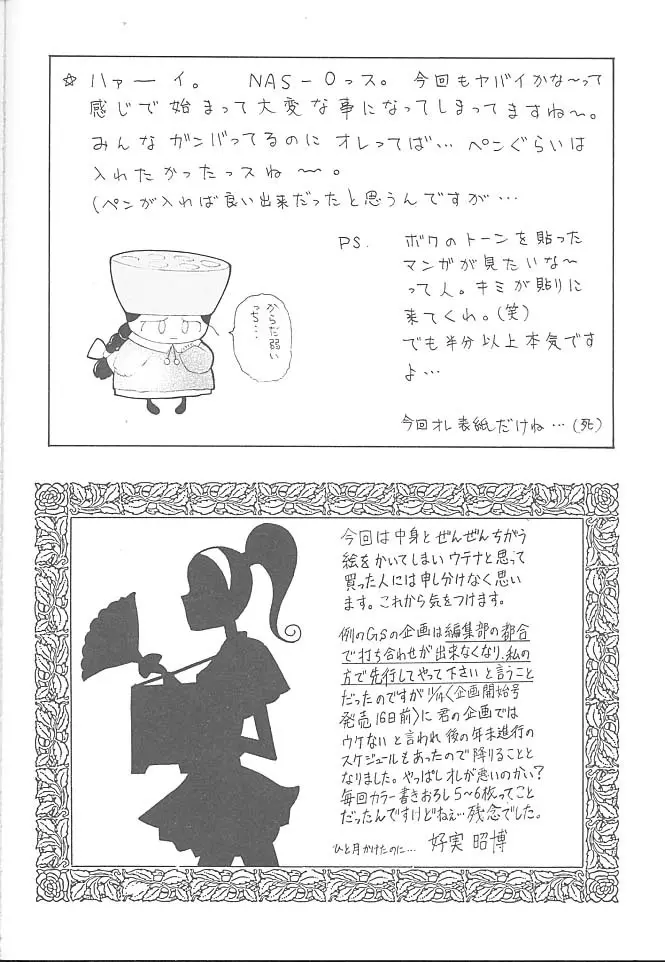 ☆ ハァーイ。 NAS-Oっス。今回もヤバイかな〜って
感じで始まって大変な事になってしまってますね〜。
みんなガンバってるのにオレってば… ペンぐらいは
入れたかったっスね〜。
(ペンが入れば良い出来だったと思うんですが…
PS. ボクのトーンを貼った
マンガが見たいな〜
って人。キミが貼りに
来てくれ。(笑)
でも半分以上本気です
よ…
からだ弱い
っち…
今回オレ表紙だけね…(死)
今回は中身とぜんぜんちがう
絵をかいてしまいウテナと思って
買った人には申し分けなく思い
ます。これから気をつけます。
例のGSの企画は編集部の都合
で打ち合わせが出来なくなり、私の
方で先行してやって下さいと言うこと
だったのですが 11/14〈企画開始号
発売16日前〉に君の企画では
ウケないと言われ後の年末進行の
スケジュールもあったので降りることと
なりました。やっぱしオレが悪いのかい?
毎回カラー書きおろし5〜6枚ってこと
だったんですけどねぇ…残念でした。
ひと月かけたのに… 好実昭博